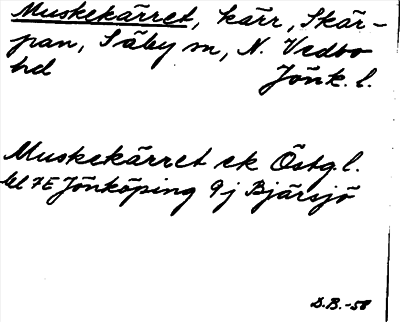 Muskekärret, kärr, Skär-
pan, Säby sn, N. Vedbo
hd Jönk. l.
Muskekärret ek Östg. l.
bl 7E Jönköping 9j Bjärsjö
D.B.-58